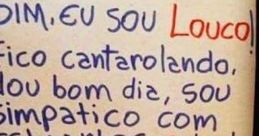 DIM, EU SOU LOUCO!
FICO CANTAROLANDO,
DOU BOM DIA, SOU
SIMPATICO COM